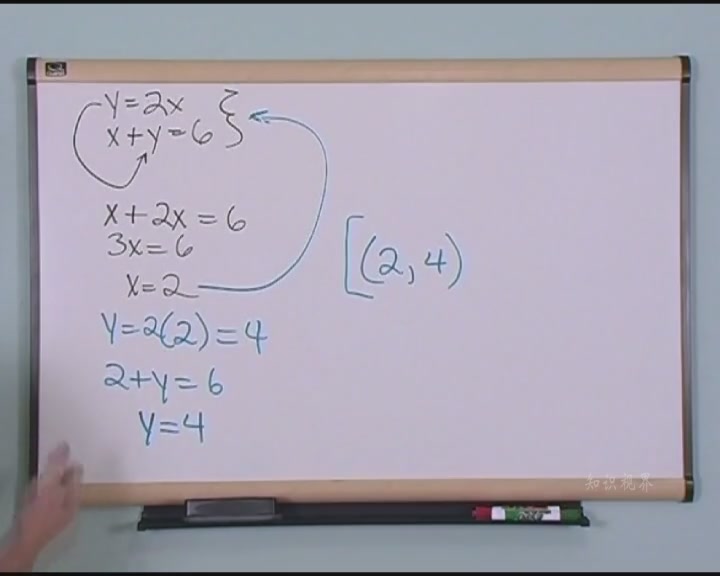 y=2x
x+y=6
x+2x=6
3x=6
x=2
y=2(2)=4
2+y=6
y=4
(2,4)
知识视界